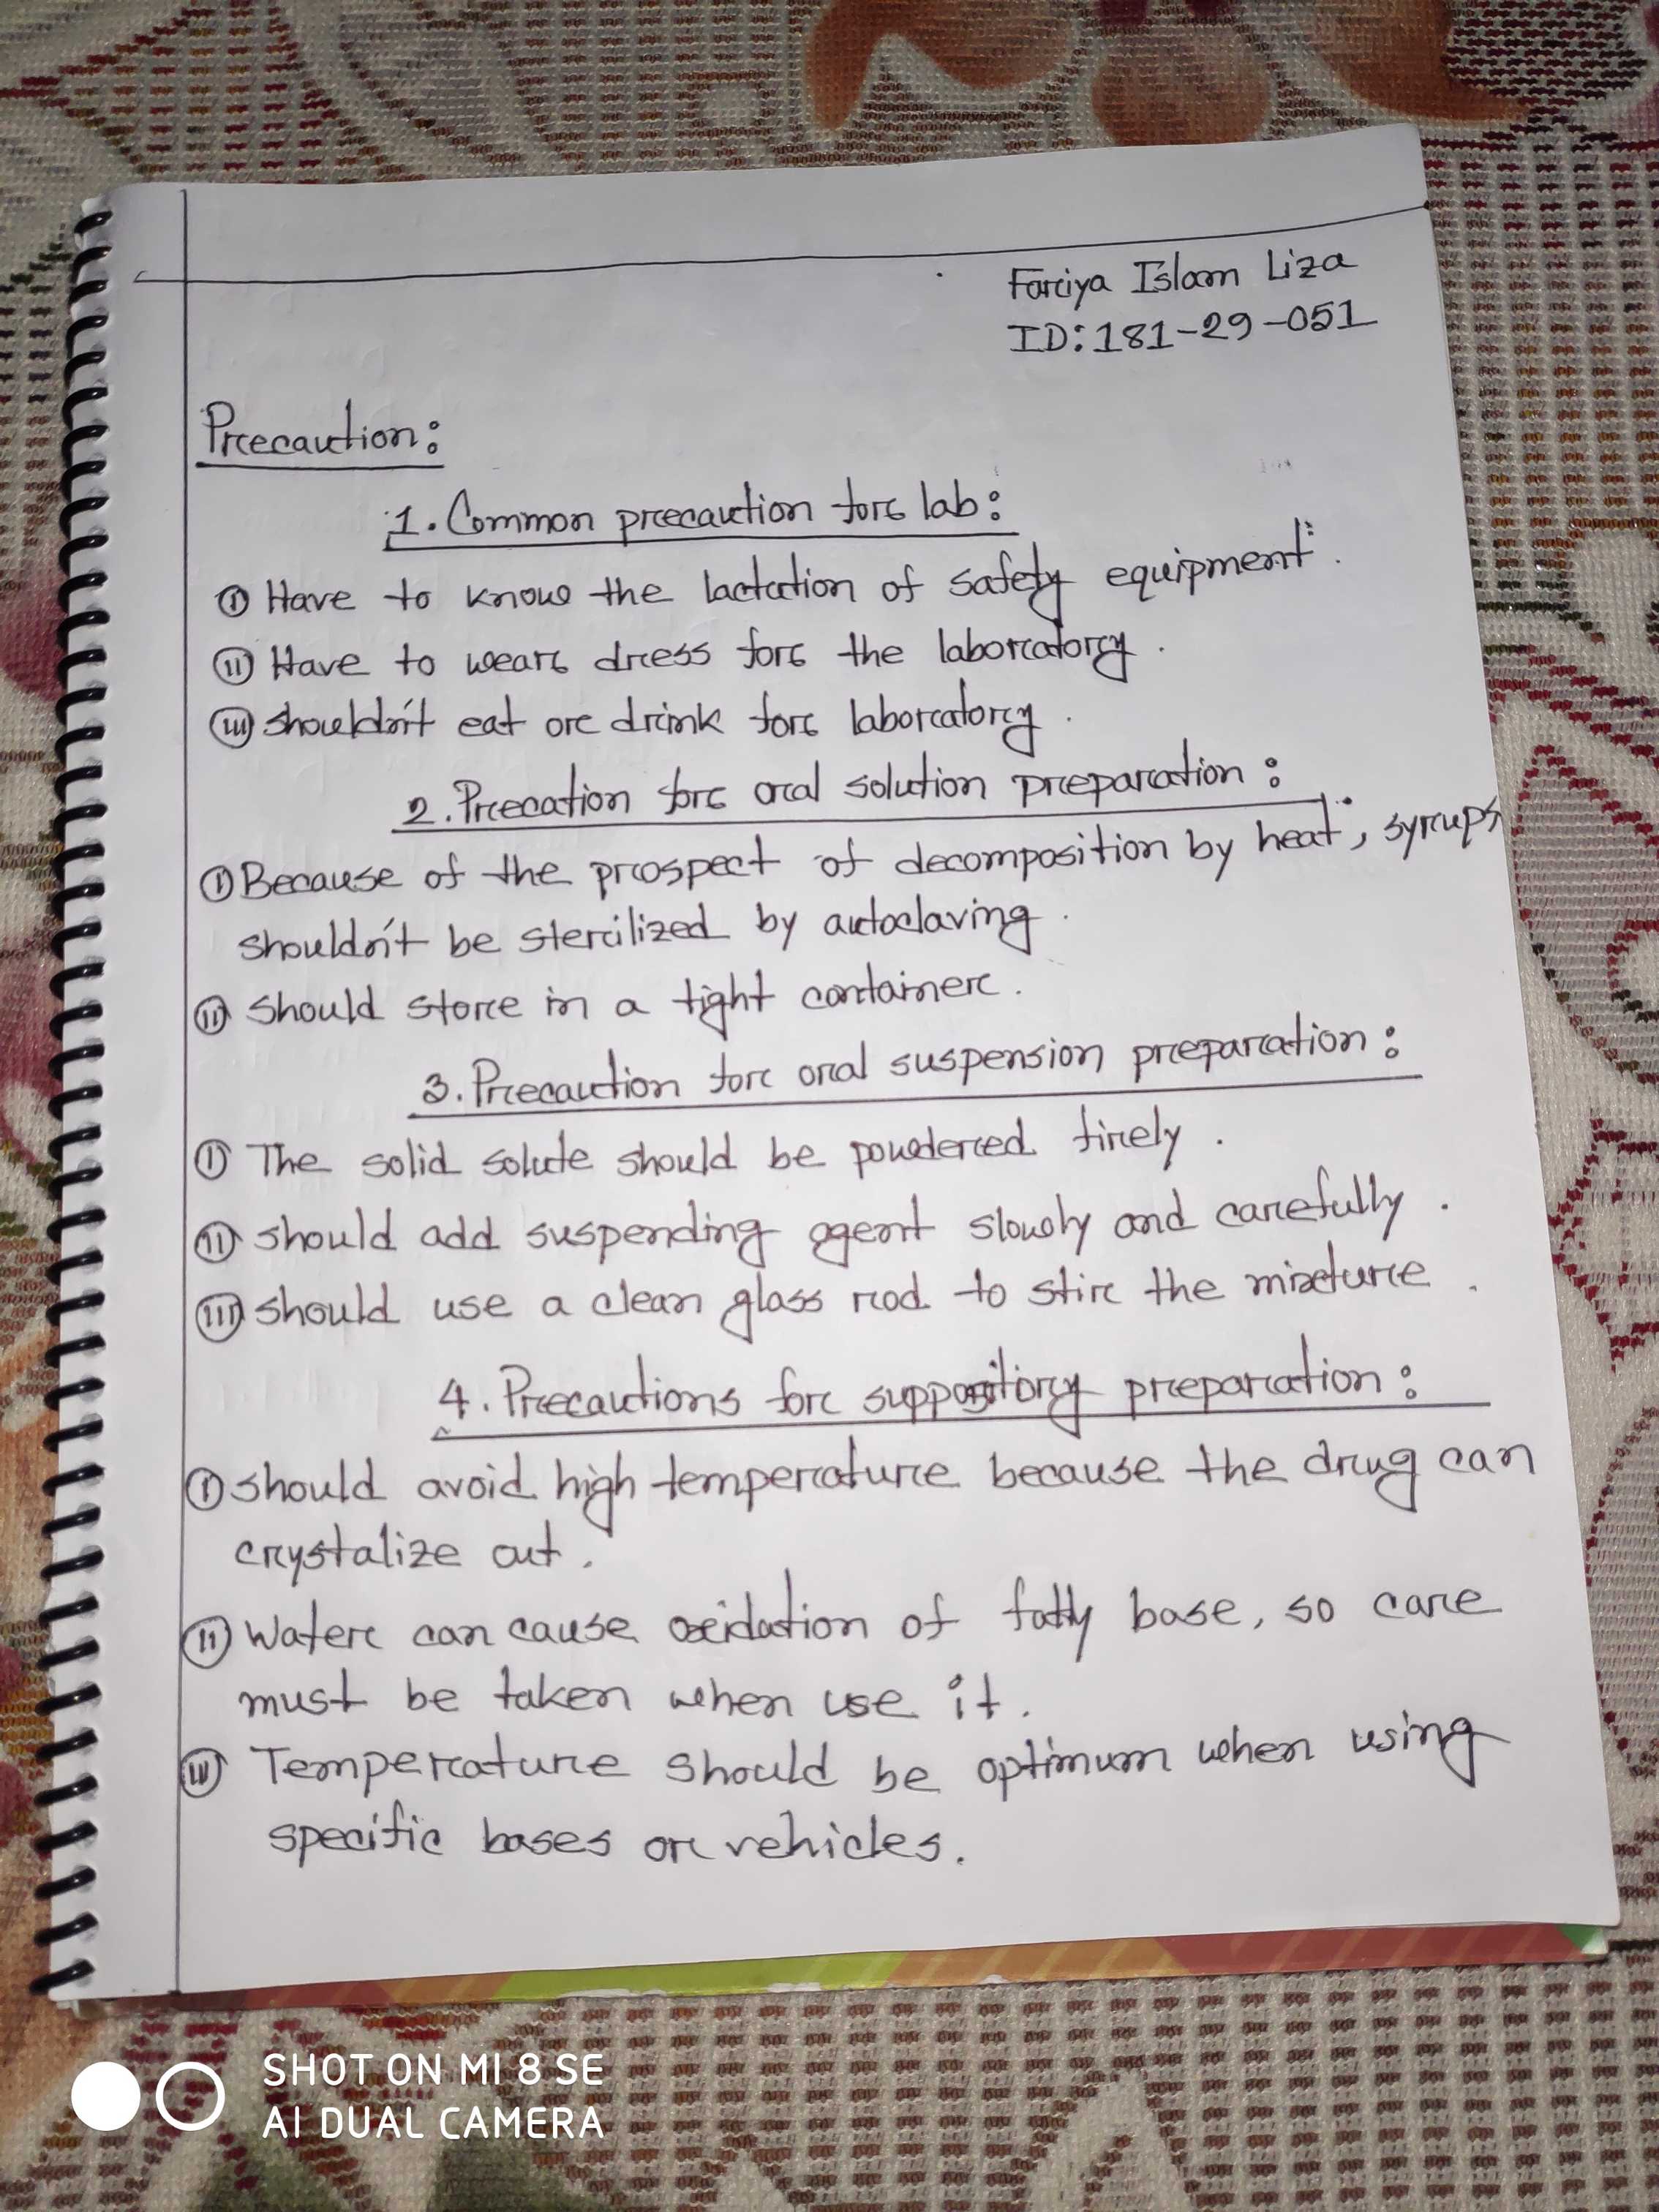 Fariya Islam Liza
ID: 181-29-051
Precaution:
1. Common precaution for lab:
(i) Have to know the lactation of safety equipment.
(ii) Have to wear dress for the laboratory.
(iii) Shouldn't eat or drink for laboratory.
2. Precation for oral solution preparation:
(i) Because of the prospect of decomposition by heat, syrups
shouldn't be sterilized by autoclaving.
(ii) Should store in a tight container.
3. Precaution for oral suspension preparation:
(i) The solid solute should be powdered finely.
(ii) Should add suspending agent slowly and carefully.
(iii) Should use a clean glass rod to stir the mixture.
4. Precautions for suppository preparation:
(i) Should avoid high temperature because the drug can
crystalize out.
(ii) Water can cause oxidation of fatty base, so care
must be taken when use it.
(iii) Temperature should be optimum when using
specific bases or vehicles.
SHOT ON MI 8 SE
AI DUAL CAMERA